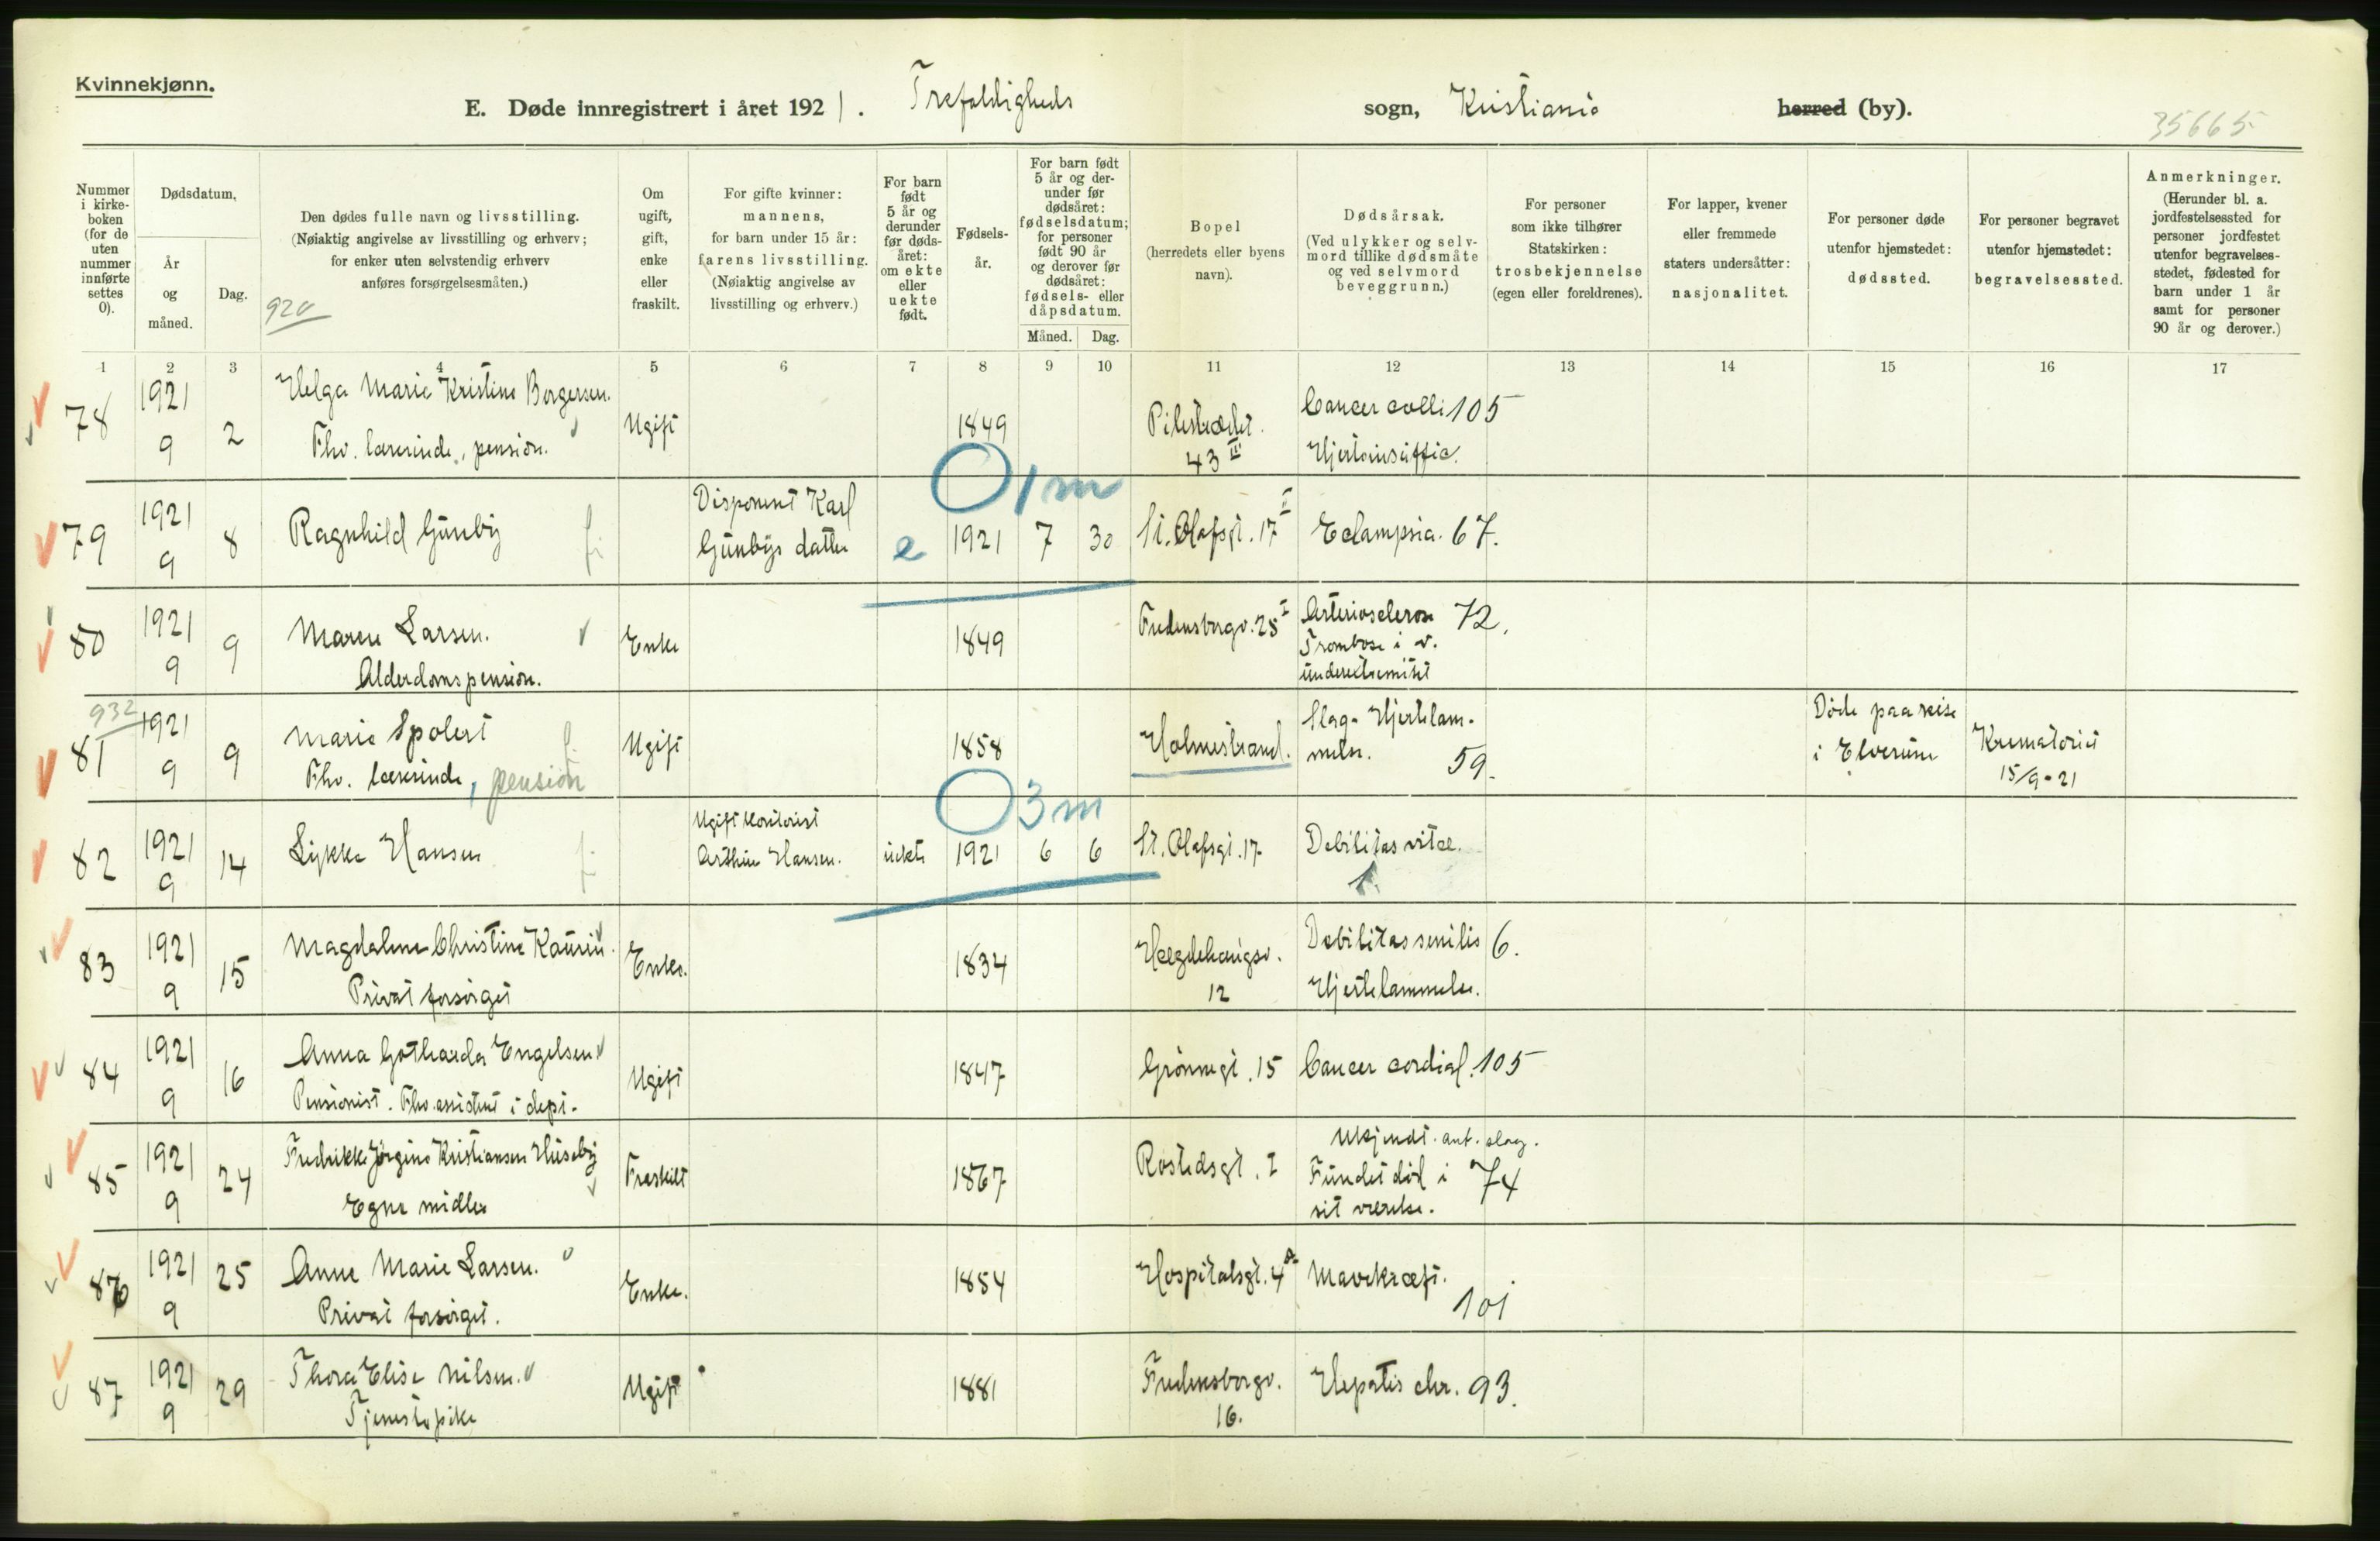 Kvinnekjønn.
E. Døde innregistrert i året 1921. Trefoldigheds sogn, Kristiania herred (by).
35665
Nummer i kirke-boken (for de uten nummer innførte settes 0).
Dødsdatum,
År og måned.
Dag.
Den dødes fulle navn og livsstilling.
(Nøiaktig angivelse av livsstilling og erhverv;
for enker uten selvstendig erhverv
anføres forsørgelsesmåten.)
920
Om ugift, gift, enke eller fraskilt.
For gifte kvinner:
mannens,
for barn under 15 år:
farens livsstilling.
(Nøiaktig angivelse av
livsstilling og erhverv.)
For barn født 5 år og derunder før døds-året: om ekte eller uekte født.
Fødsels-år.
For barn født 5 år og der-under før dødsåret: fødselsdatum; for personer født 90 år og derover før dødsåret: fødsels- eller dåpsdatum.
Måned. Dag.
Bopel
(herredets eller byens navn).
Dødsårsak.
(Ved ulykker og selv-mord tillike dødsmåte og ved selvmord beveggrunn.)
For personer
som ikke tilhører
Statskirken:
trosbekjennelse
(egen eller foreldrenes).
For lapper, kvener
eller fremmede
staters undersåtter:
nasjonalitet.
For personer døde
utenfor hjemstedet:
dødssted.
For personer begravet
utenfor hjemstedet:
begravelsessted.
Anmerkninger.
(Herunder bl. a.
jordfestelsessted for
personer jordfestet
utenfor begravelses-
stedet, fødested for
barn under 1 år
samt for personer
90 år og derover.)
1 2 3 4 5 6 7 8 9 10 11 12 13 14 15 16 17
78 1921 9 2 Helga Marie Kristine Borgersen. Ugift 1849 Pilestrædet. 43 III Cancer colli 105
Fhv. lærerinde, pension. Hjerteinsuffic.
O 1 m
79 1921 9 8 Ragnhild Gunby Disponent Karl
Gunbys datter e 1921 7 30 St. Olafsgt. 17 I Eclampsia. 67.
80 1921 9 9 Maren Larsen. Enke 1849 Fredensborgv. 25 I Arteriosclerose 72.
Alderdomspension. Trombose i v.
underextremitet
932
81 1921 9 9 Marie Spolert Ugift 1858 Holmestrand. Slag - Hjertelam-
melse. 59. Døde paa reise
i Elverum Krematoriet
15/9-21
Fhv. lærerinde, pension
O 3 m
82 1921 9 14 Lykke Hansen Ugift kontorist
Arthur Hansen. uekte 1921 6 6 St. Olafsgt. 17 Debilitas vitæ.
1.
83 1921 9 15 Magdalene Christine Kaurin. Enke. 1834 Hægdehaugsv. 12 Debilitas senilis 6.
Privat forsørget Hjertelammelse.
84 1921 9 16 Anna Gotharda Engelsen Ugift 1847 Grønnegt. 15 Cancer cordial. 105
Pensionist. Fhv. assistent i dept.
85 1921 9 24 Fredrikke Jørgine Kristiansen Huseby Fraskilt 1867 Rostedsgt. I Ukjendt. ant. slag.
Egne midler Fundet død i 74
sit værelse.
86 1921 9 25 Anne Marie Larsen. Enke. 1854 Hospitalsgt. 4 A Mavekræft.
Privat forsørget. 101
87 1921 9 29 Thora Elise Nilsen. Ugift 1881 Fredensborgv. 16. Hepatis chr. 93.
Tjenestepike